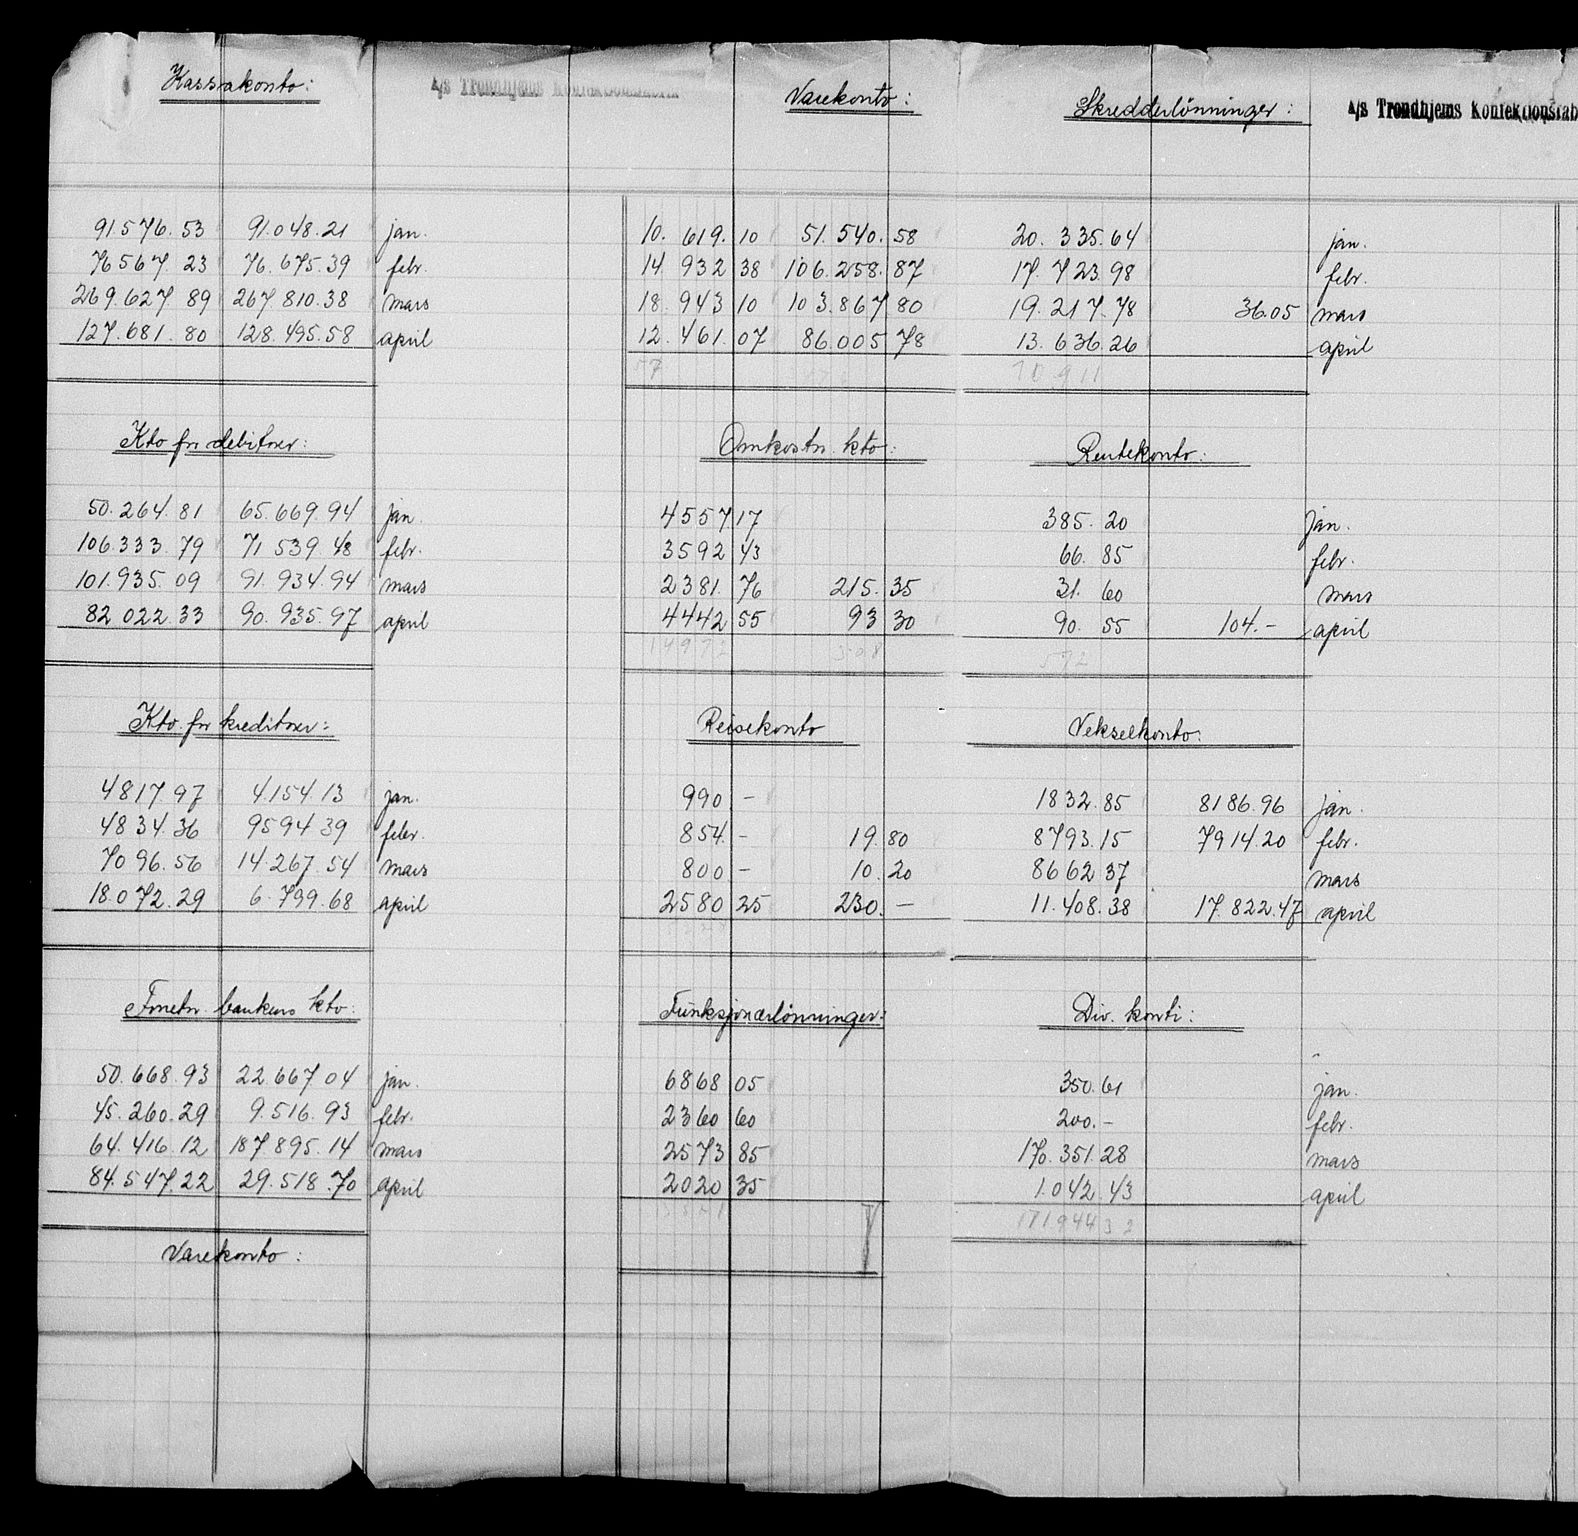 Kassakonto:
A/s Trondhjems Konfektionsfabrik
91576.53 91.048.21 jan.
76567.23 76.675.39 febr.
269.627.89 267.810.38 mars
127.681.80 128.495.58 april
Kto for debitorer:
50.264.81 65.669.94 jan.
106.333.79 71539.48 febr.
101.935.09 91.934.94 mars
82022.33 90.935.97 april
Kto. for kreditorer:
4817.97 4.154.13 jan.
4834.36 9594.39 febr.
7096.56 14.267.54 mars
18.072.29 6.799.68 april
Forretn. bankens kto:
50.668.93 22.667.04 jan.
45.260.29 9.516.93 febr.
64.416.12 187895.14 mars
84.547.22 29.518.70 april
Varekonto:
Varekonto:
10.619.10 51.540.58
14.932 38 106.258.87
18.943 10 103.867 80
12.461.07 86.005 78
Omkostn kto:
4557 17
3592 43
2381.76 215.35
4442 55 93 30
14972 308
Reisekonto
990.-
854.- 19.80
800- 10.20
2580 25 230.-
Funksjonærlønninger:
6868 05
2360 60
2573 85
2020 35
Skredderlønninger:
A/s Trondhjems Konfektionsfab
20.335.64 jan.
17.723.98 febr.
19.217.78 36.05 mars
13.636.26 april
70911
Rentekonto:
385.20 jan.
66.85 febr.
31.60 mars
90.55 104.- april
572
Vekselkonto:
1832.85 8186.96 jan.
8793.15 7914.20 febr.
8662 37 mars
11.408.38 17.822.47 april
Div. konti:
350.61 jan.
200.- febr.
170.351.28 mars
1.042.43 april
171944 32